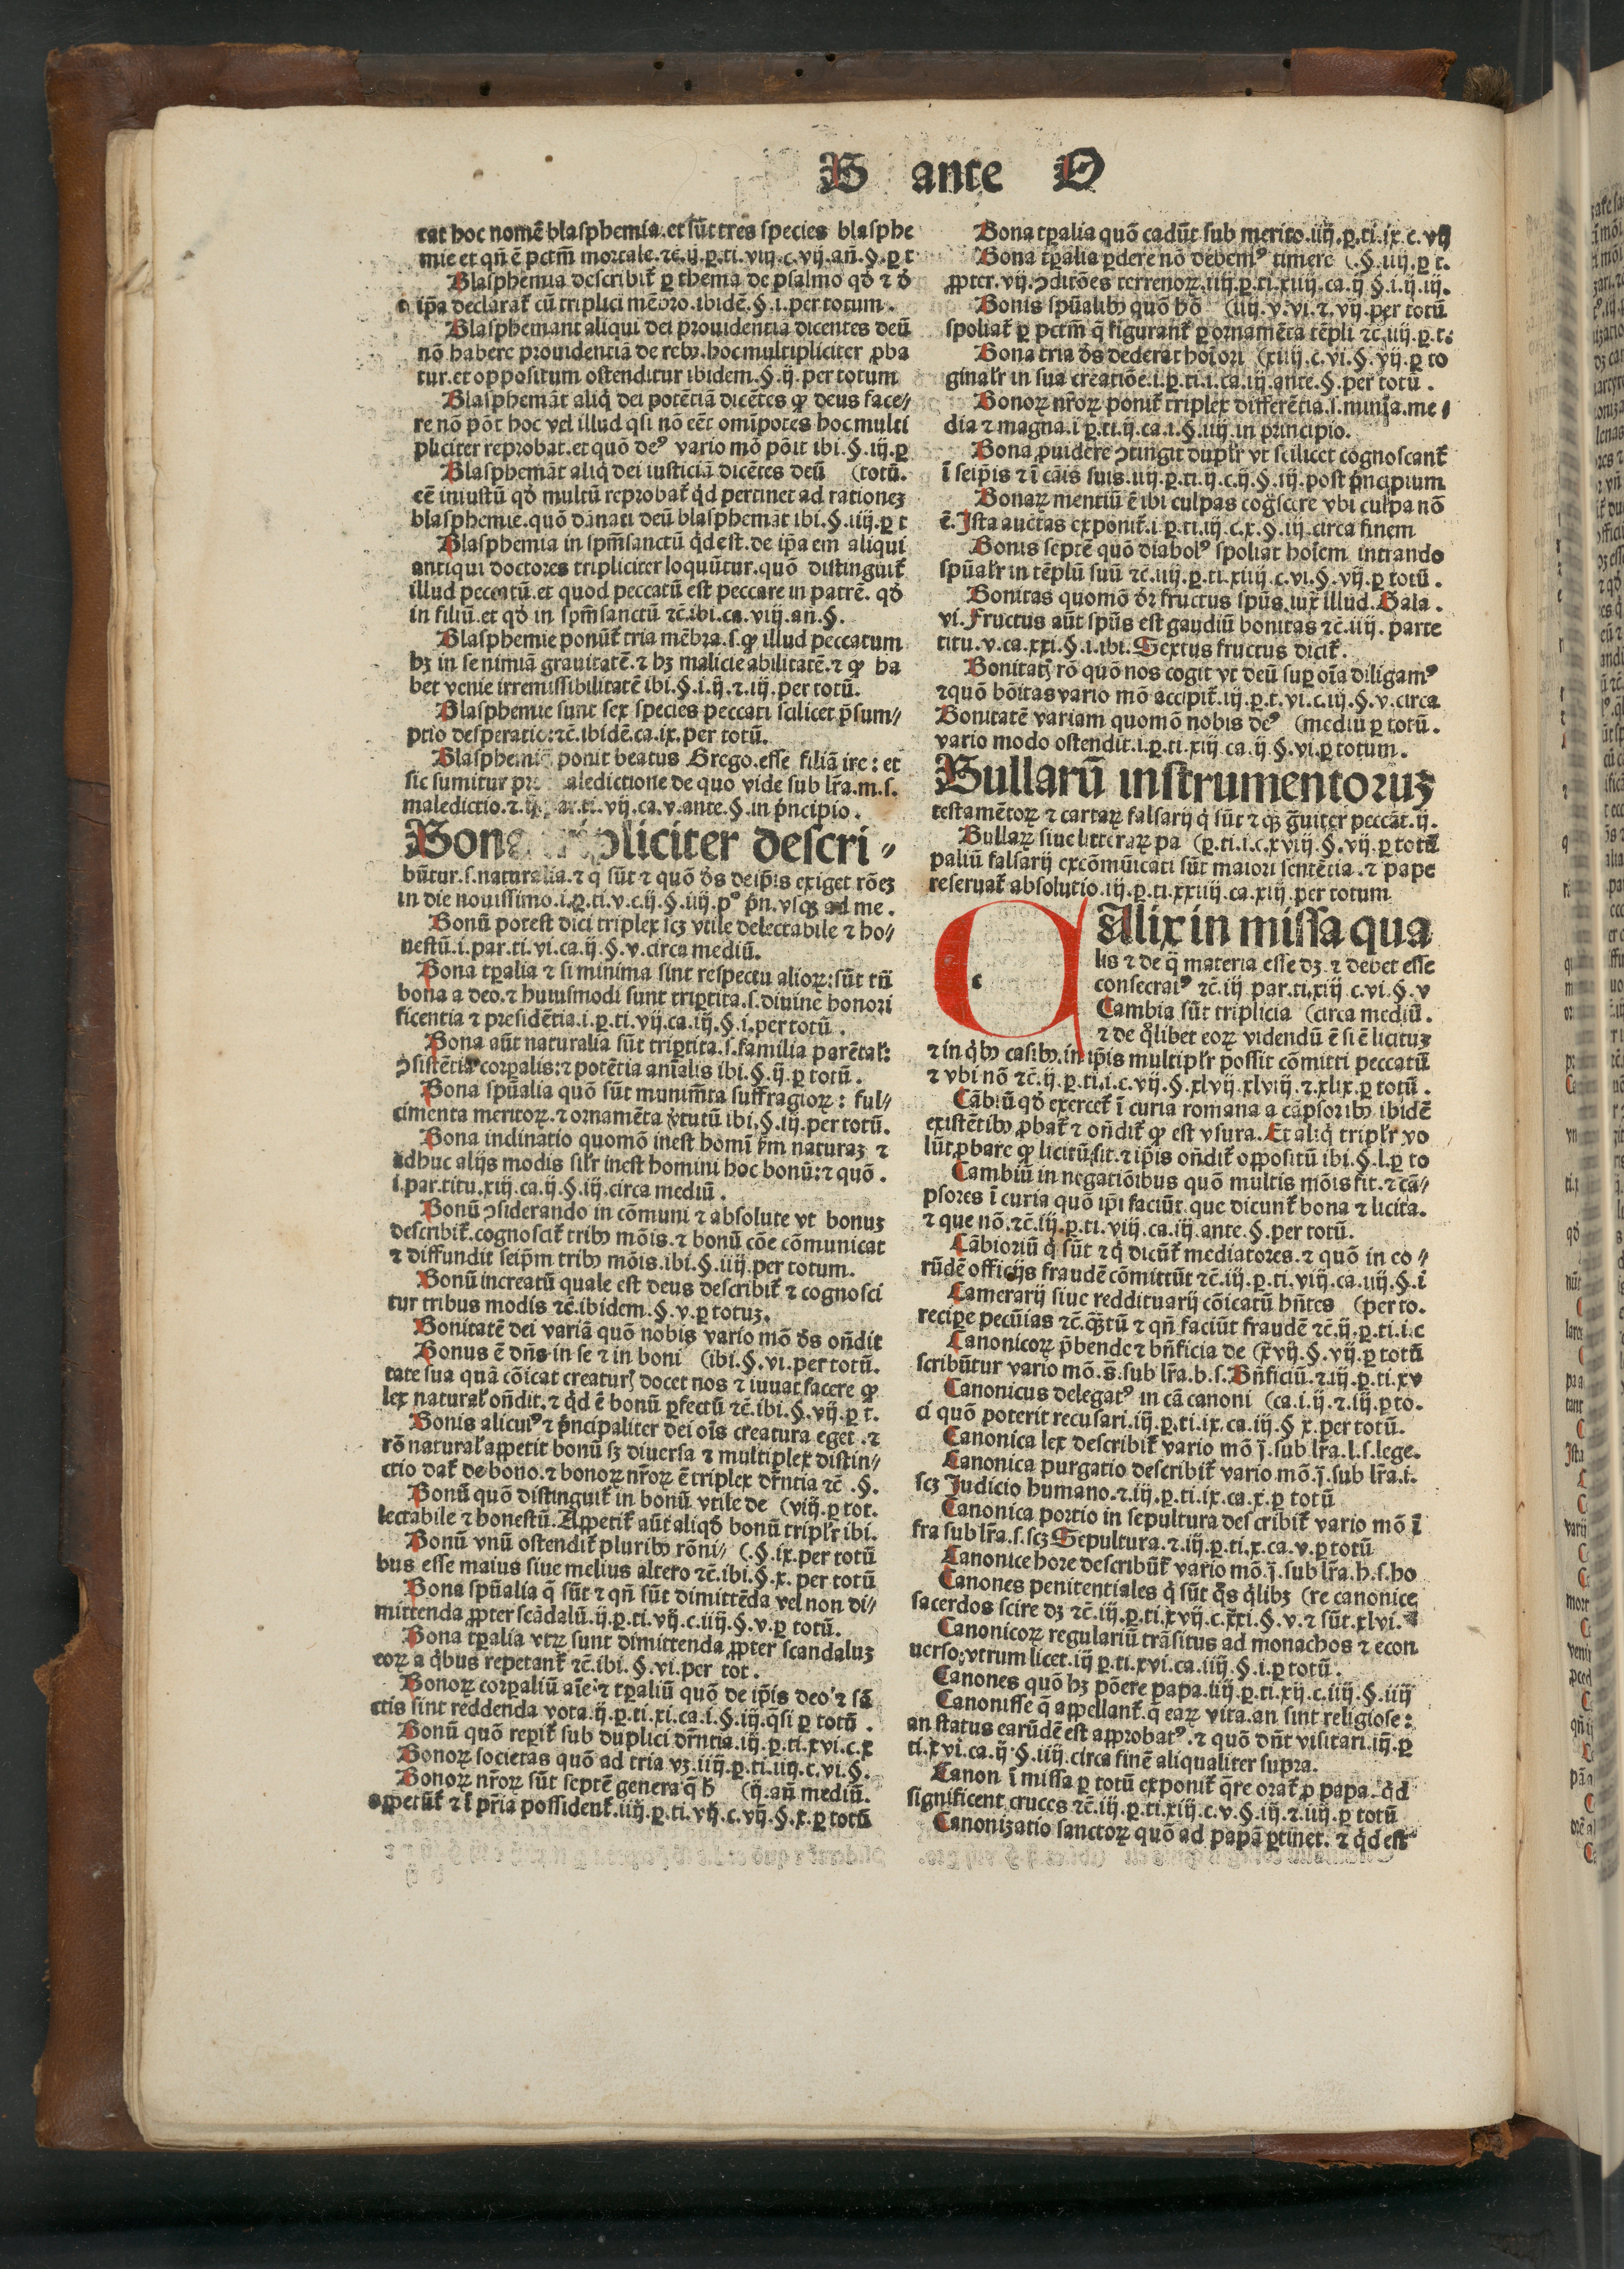 B ante O
tat hoc nomẽ blasphemia.et sũt tres species blasphe
mie et qñ ẽ pctm̃ mortale.⁊c̃.ij.ꝑ.ti.viij.c.vij.añ.§.ꝑ t
Blasphemia describit᷑ ꝑ thema de psalmo qđ ⁊ đ
ip̃a declarat᷑ cũ triplici mẽbro.ibidẽ.§.i.per totum.
Blasphemant aliqui dei prouidentiã dicentes deũ
nõ habere prouidentiã de rebꝰ.hoc multipliciter ꝓba
tur.et oppositum ostenditur ibidem.§.ij.per totum
Blasphemãt aliq̃ dei potẽtiã dicẽtes ꝙ deus face⸗
re nõ põt hoc vel illud q̃si nõ eẽt om̃ipotes hoc multi
pliciter reprobat.et quõ deꝰ vario mõ põit ibi.§.iij.ꝑ
Blasphemãt aliq̃ dei iusticiã dicẽtes deũ (totũ.
eẽ iniustũ qđ multũ reprobat᷑ q̃d pertinet ad rationeꝫ
blasphemie.quõ dãnati deũ blasphemãt ibi.§.iiij.ꝑ t
Blasphemia in spm̃sanctũ q̃d est.de ip̃a em̃ aliqui
antiqui doctores tripliciter loquũtur.quõ distinguit᷑
illud peccatũ.et quod peccatũ est peccare in patrẽ. qđ
in filiũ.et qđ in spm̃sanctũ ⁊c̃.ibi.ca.viij.añ.§.
Blasphemie ponũt᷑ tria mẽbra.s.ꝙ illud peccatum
hꝫ in se nimiã grauitatẽ.⁊ hꝫ malicie abilitatẽ.⁊ ꝙ ha
bet venie irremissibilitatẽ ibi.§.i.ij.⁊.iij.per totũ.
Blasphemie sunt sex species peccati scilicet p̃sum⸗
ptio desperatio:⁊c̃.ibidẽ.ca.ix.per totũ.
ponit beatus Grego.esse filiã ire: et
sic sumitur aledictione de quo vide sub lr̃a.m.s.
maledictio.⁊ vij.ca.v.ante.§.in p̃ncipio.
pliciter descri⸗
bũtur.s.naturalia.⁊ q̃ sũt ⁊ quõ đs de ip̃is exiget rõeꝫ
in die nouissimo.i.ꝑ.ti.v.c.ij.§.iiij.pꝰ p̃n.vsqꝫ ad me.
Bonũ potest dici triplex scꝫ vtile delectabile ⁊ ho⸗
nestũ.i.par.ti.vi.ca.ij.§.v.circa mediũ.
Bona tꝑalia ⁊ si minima sint respectu alioꝝ:sũt tñ
bona a deo.⁊ huiusmodi sunt triꝑtita.s.diuine honori
ficentia ⁊ presidẽtia.i.ꝑ.ti.vij.ca.iij.§.i.per totũ.
Bona aũt naturalia sũt triꝑtita.s.familia parẽtal᷑:
ↄsistẽtia corꝑalis:⁊ potẽtia anĩalis ibi.§.ij.ꝑ totũ.
Bona spũalia quõ sũt munim̃ta suffragioꝝ: ful⸗
cimenta meritoꝝ.⁊ ornamẽta v̓tutũ ibi.§.iij.per totũ.
Bona inclinatio quomõ inest homĩ km̃ naturaꝫ ⁊
adhuc alijs modis silr̃ inest homini hoc bonũ:⁊ quõ.
i.par.titu.xiij.ca.ij.§.iij.circa mediũ.
Bonũ ↄsiderando in cõmuni ⁊ absolute vt bonuꝫ
describit᷑.cognoscit᷑ tribꝰ mõis.⁊ bonũ cõe cõmunicat
⁊ diffundit seip̃m tribꝰ mõis.ibi.§.iiij.per totum.
Bonũ increatũ quale est deus describit᷑ ⁊ cognosci
tur tribus modis ⁊c̃.ibidem.§.v.ꝑ totuꝫ.
Bonitatẽ dei variã quõ nobis vario mõ đs oñdit
Bonus ẽ dñs in se ⁊ in boni (ibi.§.vi.per totũ.
tate sua quã cõicat creaturꝭ docet nos ⁊ iuuat facere ꝙ
lex natural᷑ oñdit.⁊ q̃d ẽ bonũ ꝑfectũ ⁊c̃.ibi.§.vij.ꝑ t.
Bonis alicuiꝰ ⁊ p̃ncipaliter dei oĩs creatura eget.⁊
rõ natural᷑ aꝑpetit bonũ sꝫ diuersa ⁊ multiplex distin⸗
ctio dat᷑ de bono.⁊ bonoꝝ nr̃oꝝ ẽ triplex dr̃ntia ⁊c̃.§.
Bonũ quõ distinguit᷑ in bonũ vtile de (viij.ꝑ tot.
lectabile ⁊ honestũ.Appetit᷑ aũt aliqđ bonũ triplr̃ ibi.
Bonũ vnũ ostendit᷑ pluribꝰ rõni⸗ (.§.ix.per totũ
bus esse maius siue melius altero ⁊c̃.ibi.§.x. per totũ
Bona spũalia q̃ sũt ⁊ qñ sũt dimittẽda vel non di⸗
mittenda ꝓpter scãdalũ.ij.ꝑ.ti.vij.c.iiij.§.v.ꝑ totũ.
Bona tꝑalia vtꝝ sunt dimittenda ꝓpter scandaluꝫ
eoꝝ a q̃bus repetant᷑ ⁊c̃.ibi.§.vi.per tot.
Bonoꝝ corꝑaliũ aĩe ⁊ tꝑaliũ quõ de ip̃is deo ⁊ sã
ctis sint reddenda vota.ij.ꝑ.ti.xi.ca.i.§.iij.q̃si ꝑ totũ.
Bonũ quõ reꝑit᷑ sub duplici dr̃ntia.iij.ꝑ.ti.xvi.c.x
Bonoꝝ societas quõ ad tria vꝫ.iiij.ꝑ.ti.iiij.c.vi.§.
Bonoꝝ nr̃oꝝ sũt septẽ genera q̃ h̃ (ij.añ mediũ.
appetũt᷑ ⁊ ĩ pr̃ia possident᷑.iiij.ꝑ.ti.vij.c.vij.§.x.ꝑ totũ
Bona tꝑalia quõ cadũt sub merito.iiij.ꝑ.ti.ix.c.vij
Bona tꝑalia ꝑdere nõ debemꝰ timere (.§.iiij.ꝑ t.
ꝓpter.vij.ↄditões terrenoꝝ.iiij.ꝑ.ti.xiiij.ca.ij.§.i.ij.iij.
Bonis spũalibꝰ quõ hõ (iiij.v.vi.⁊.vij.per totũ
spoliat᷑ ꝑ pctm̃ q̃ figurant᷑ ꝑ ornamẽta tẽpli ⁊c̃.iiij.ꝑ.t.
Bona tria đs dederat hoĩ ori (xiiij.c.vi.§.vij.ꝑ to
ginalr̃ in sua creatiõe.i.ꝑ.ti.i.ca.iij.ante.§.per totũ.
Bonoꝝ nr̃oꝝ ponit᷑ triplex differẽtia.s.minia.me⸗
dia ⁊ magna.i ꝑ.ti.ij.ca.i.§.iiij.in principio.
Bona ꝓuidere ↄtingit duplr̃ vt scilicet cognoscant᷑
ĩ seip̃is ⁊ ĩ cãis suis.iiij.ꝑ.ti.ij.c.ij.§.iij.post p̃ncipium
Bonaꝝ mentiũ ẽ ibi culpas cog̃scere vbi culpa nõ
ẽ.Ista auctas exponit᷑.i.ꝑ.ti.iij.c.x.§.iij.circa finem
Bonis septẽ quõ diabolꝰ spoliat hoĩem intrando
spũalr̃ in tẽplũ suũ ⁊c̃.iiij.ꝑ.ti.xiiij.c.vi.§.vij.ꝑ totũ.
Bonitas quomõ đr fructus spũs.iux̃ illud.Gala.
vi.Fructus aũt spũs est gaudiũ bonitas ⁊c̃.iiij. parte
titu.v.ca.xxi.§.i.ibi.Sextus fructus dicit᷑.
Bonitatꝭ rõ quõ nos cogit vt deũ suꝑ oĩa diligamꝰ
⁊quõ bõitas vario mõ accipit᷑.iij.ꝑ.t.vi.c.iij.§.v.circa
Bonitatẽ variam quomõ nobis deꝰ (mediũ ꝑ totũ.
vario modo ostendit.i.ꝑ.ti.xiij.ca.ij.§.vi.ꝑ totum.
Bullarũ instrumentoruꝫ
testamẽtoꝝ ⁊ cartaꝝ falsarij q̃ sũt ⁊ qꝫ g̃uiter peccãt.ij.
Bullaꝝ siue litteraꝝ pa (ꝑ.ti.i.c.xviij.§.vij.ꝑ totũ
paliũ falsarij excõmũicati sũt maiori sentẽtia.⁊ pape
reseruat᷑ absolutio.iij.ꝑ.ti.xxiiij.ca.xiij.per totum
CAlix in missa qua
lis ⁊ de q̃ materia esse dꝫ.⁊ debet esse
consecratꝰ ⁊c̃.iij par.ti.xiij c.vi.§.v
Cambia sũt triplicia (circa mediũ.
⁊ de q̃libet eoꝝ videndũ ẽ si ẽ licituꝫ
⁊ in q̃bꝰ casibꝰ.in ip̃is multiplr̃ possit cõmitti peccatũ
⁊ vbi nõ ⁊c̃.ij.ꝑ.ti.i.c.vij.§.xlvij.xlviij.⁊.xlix.ꝑ totũ.
Cãbiũ qđ exercet᷑ ĩ curia romana a cãpsoribꝰ ibidẽ
existẽtibꝰ ꝓbat᷑ ⁊ oñdit᷑ ꝙ est vsura.Et aliq̃ triplr̃ vo
lũt ꝓbare ꝙ licitũ sit.⁊ ip̃is oñdit᷑ oppositũ ibi.§.l.ꝑ to
Cambiũ in negatiõibus quõ multis mõis fit.⁊ cã⸗
psores ĩ curia quõ ip̃i faciũt.que dicunt᷑ bona ⁊ licita.
⁊ que nõ.⁊c̃.iij.ꝑ.ti.viij.ca.iij.ante.§.per totũ.
Cãbioriũ q̃ sũt ⁊ q̃ dicũt᷑ mediatores.⁊ quõ in eo⸗
rũdẽ officijs fraudẽ cõmittũt ⁊c̃.iij.ꝑ.ti.viij.ca.iiij.§.ĩ
Camerarij siue reddituarij cõicatũ hñtes (per to.
recipe pecũias ⁊c̃.q̃tũ ⁊ qñ faciũt fraudẽ ⁊c̃.ij.ꝑ.ti.i.c
Canonicoꝝ p̃bende ⁊ bñficia de (xvij.§.vij.ꝑ totũ
scribũtur vario mõ.s̃.sub lr̃a.b.s.Bñficiũ.⁊.iij.ꝑ.ti.xv
Canonicus delegatꝰ in cã canoni (ca.i.ij.⁊.iij.ꝑ to.
ci quõ poterit recusari.iij.ꝑ.ti.ix.ca.iij.§ x.per totũ.
Canonica lex describit᷑ vario mõ j̃.sub lr̃a.l.s.lege.
Canonica purgatio describit᷑ vario mõ.j̃.sub lr̃a.i.
scꝫ Judicio humano.⁊.iij.ꝑ.ti.ix.ca.x.ꝑ totũ
Canonica portio in sepultura describit᷑ vario mõ ĩ
fra sub lr̃a.s.scꝫ Sepultura.⁊.iij.ꝑ.ti.x.ca.v.ꝑ totũ
Canonice hore describũt᷑ vario mõ.j̃.sub lr̃a.h.s.ho
Canones penitentiales q̃ sũt q̃s q̃libꝫ (re canonice
sacerdos scire dꝫ ⁊c̃.iij.ꝑ.ti.xvij.c.xxi.§.v.⁊ sũt.xlvi.
Canonicoꝝ regulariũ trãsitus ad monachos ⁊ econ
uerso:vtrum licet.iij ꝑ.ti.xvi.ca.iiij.§.i.ꝑ totũ.
Canones quõ hꝫ põere papa.iiij.ꝑ.ti.xij.c.iiij.§.iiij
Canonisse q̃ appellant᷑.q̃ earꝝ vita.an sint religiose:
an status earũdẽ est approbatꝰ.⁊ quõ dñt visitari.iij.ꝑ
ti.xvi.ca.ij.§.iiij.circa finẽ aliqualiter supra.
Canon ĩ missa ꝑ totũ exponit᷑ q̃re orat᷑ ꝓ papa.q̃d
significent cruces ⁊c̃.iij.ꝑ.ti.xiij.c.v.§.iij.⁊.iiij.ꝑ totũ
Canonizatio sanctoꝝ quõ ad papã ꝑtinet.⁊ q̃d est